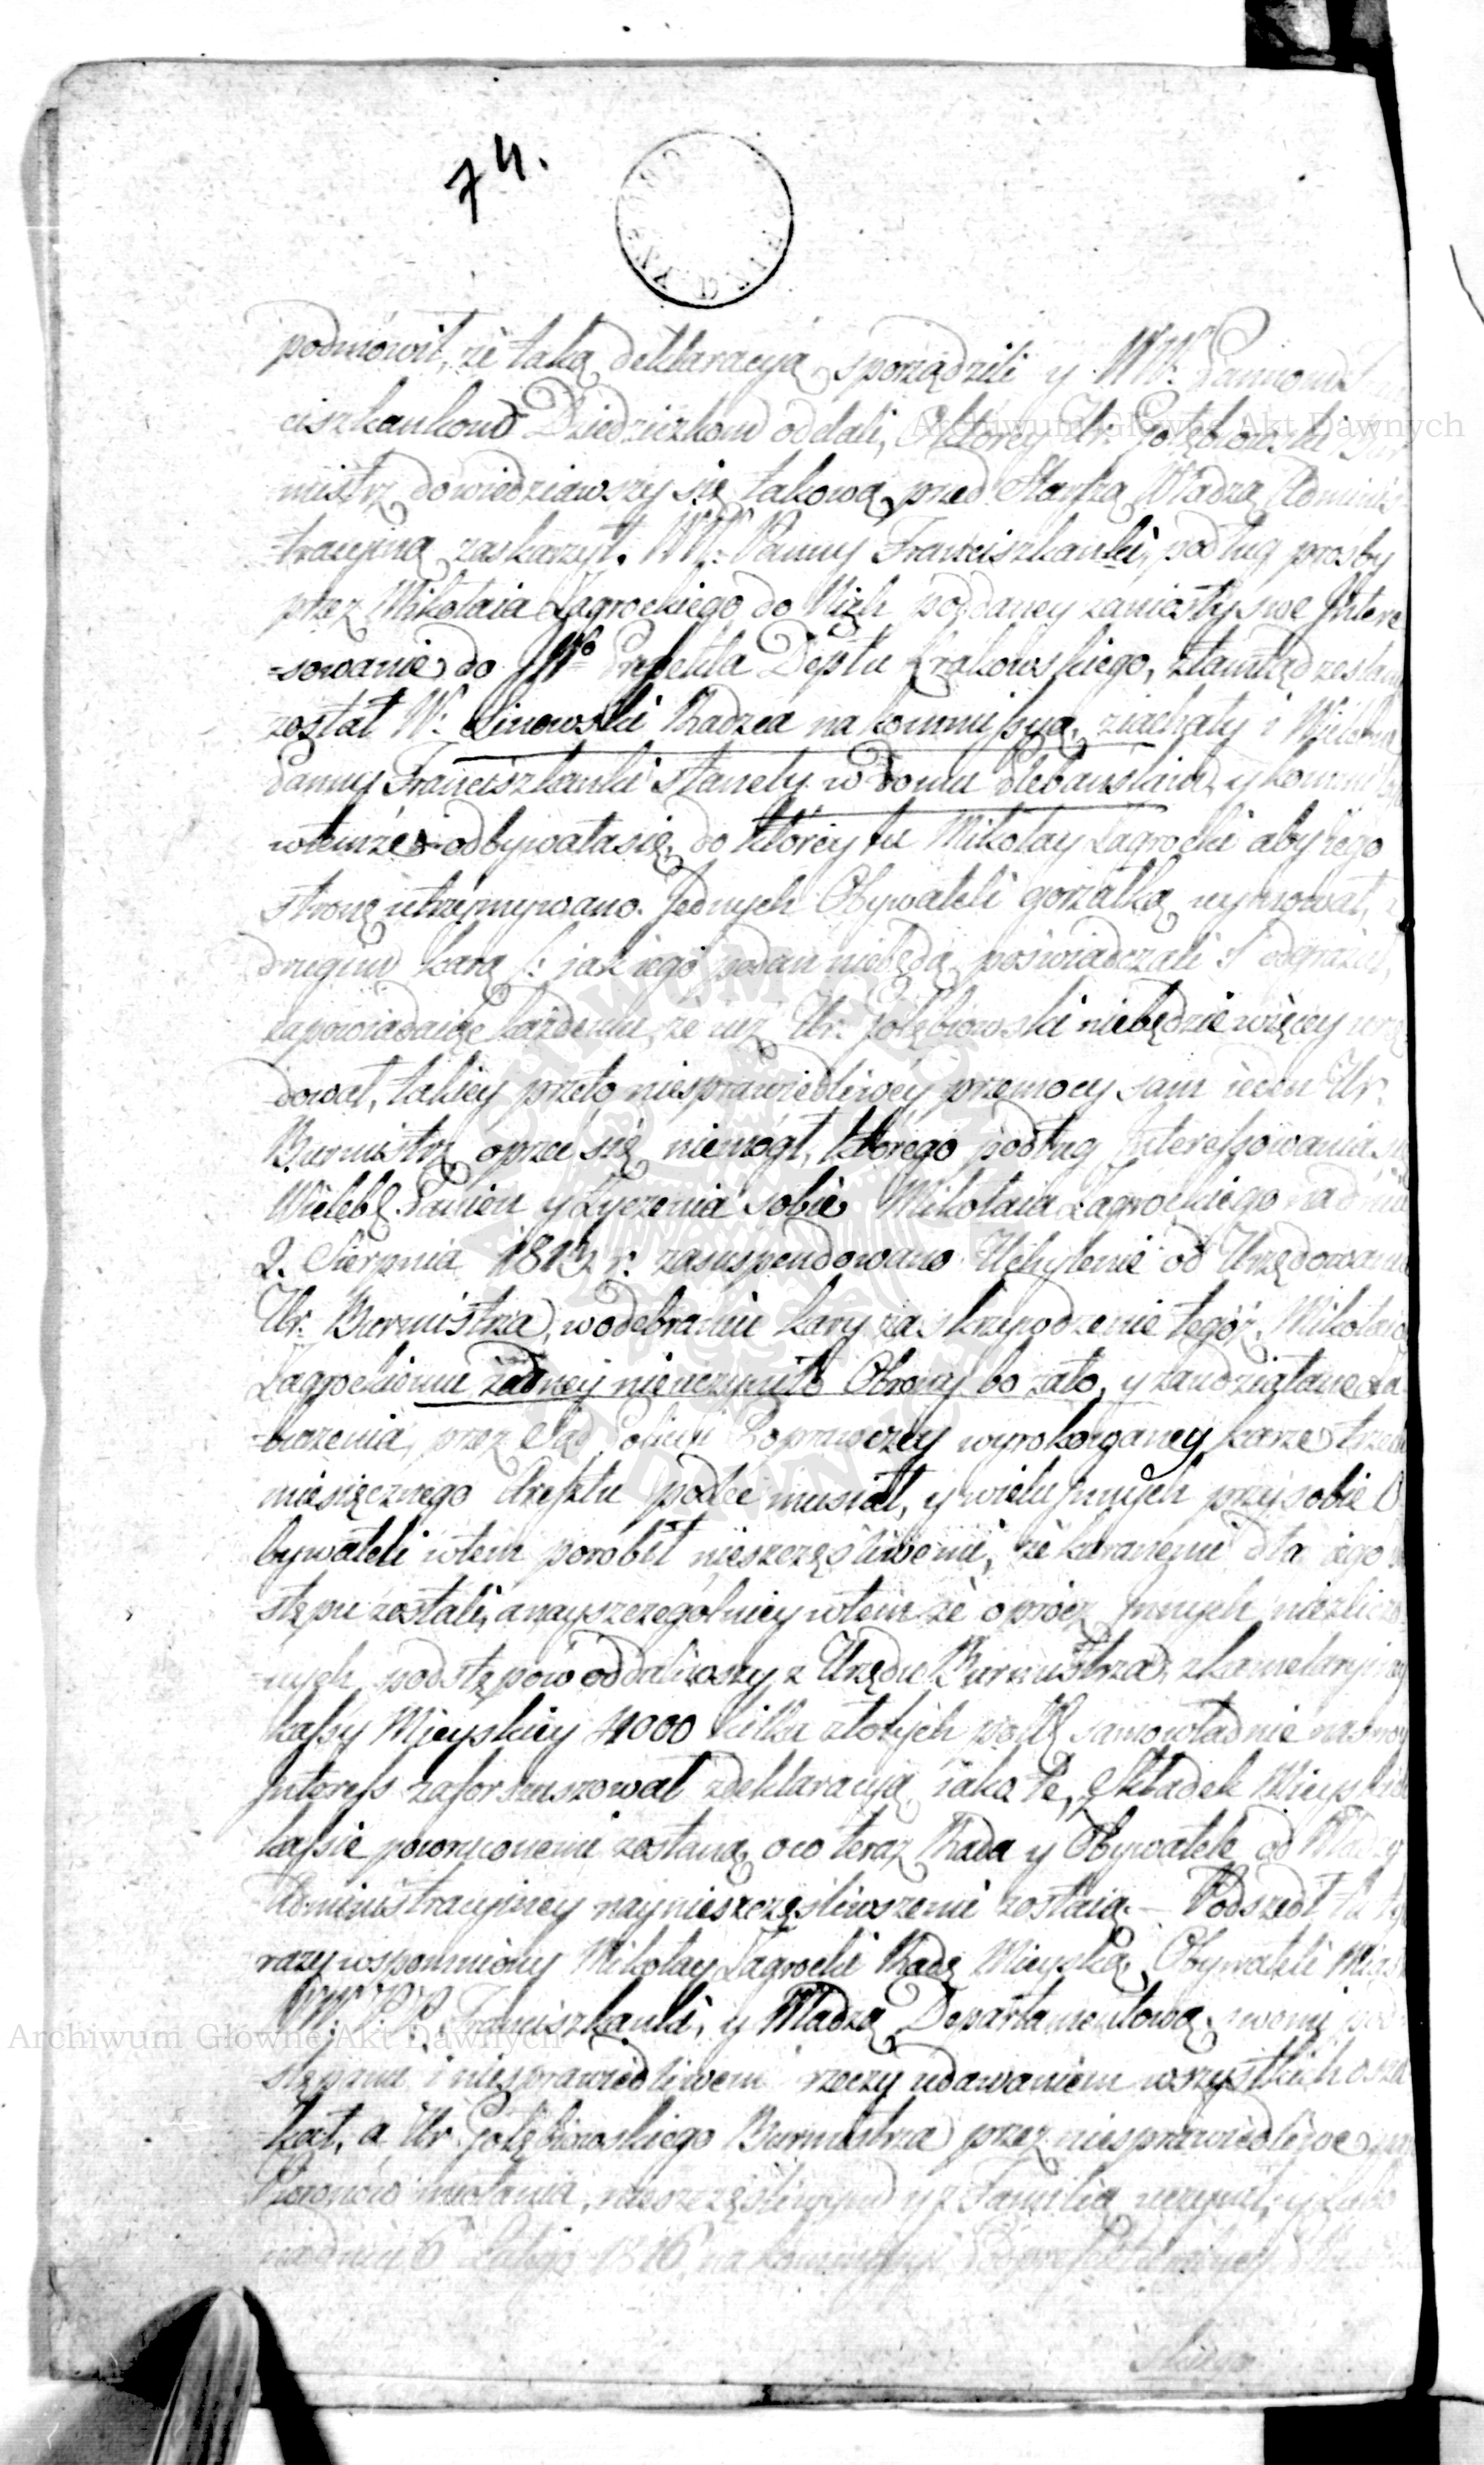 74.
podmówił, że taką deklaracyą sporządzili y WW. Pannom
ciszkankom Dziedziczkom oddali, O którey Ur. Gołębiowski Bur
mistrz dowiedziawszy się takową przed Władzą Adminis
tracyiną zaskarzył. WW: Panny Franciszkanki, podług prosby
przez Mikołaia Zagrockiego do Nich poddaney zaniosły swe Intere
=sowanie do JWo Prefekta Deptu Krakowskiego, ztamtąd zesłany
został W: Linowski Radzca na kommissyą, ziachały i Wielebne
Panny Franciszkanki stanęły w Domu Plebańskim, y kommissya
wtemże odbywała się, do którey tu Mikołay Zagrocki aby iego
stronę utrzymywano. Jednych Obywateli gorzałką uymował, a
drugim karą /: jak iego podań niebędą poświadczali :/ odgrażał,
zapowiadaiąc każdemu, że iuż Ur. Gołębiowski niebędzie więcey urzę
dował, takiey przeto niesprawiedliwey przemocy sam ieden Ur.
Burmistrz oprzeć się niemógł, którego podług Interessowania się
Wielebl. Panien y Życzenia sobie Mikołaia Zagrockiego na dniu
2. Sierpnia 1813 r. zasuspendowano. Uchylenie od Urzędowania
Ur. Burmistrza, wodebraniu kary za skrzywdzenie tegoż Mikołaia
Zagrockiemu żadney nieuczyniło Obrony bo zato, y zaudziałane
=biżenia, przez Sąd Policyi Poprawczey wyrokorganey karze trzech
miesięcznego Aresztu podledz musiał, y wielu innych przy sobie O
bywateli wtem porobił nieszczęśliwemi, że karanemi dla iego
stępu zostali, a nayszczególniey wtem że oprócz Innych niezliczo
nych podstępów oddaliwszy z Urzędu Burmistrza, zkamelaryiney
kassy Mieyskiey 4000 kilka złotych samowładnie naswoy
Interess zaforszusował zdeklaracyą, iako te, z składek Mieyskich
kassie powróconemi zostaną, oco teraz Rada y Obywatele od Władzy
Administracyiney naynieszczęśliwszemi zostaią. – Podszedł tu
razy wspomniony Mikołay Zagrocki Radę Mieyską, Obywateli Miasta
WW. P.P. Franciszkanki, y Władzą Departamentową swemi pod
stępami i niesprawiedliwem rzeczy udawaniem wszystkich oszu
kał, a Ur. Gołębiowskiego Burmistrza przez niesprawiedliwe
nieszczęśliwym y z Familią uczynił, y
na dniu 6 Lutego 1816 na kommissyi